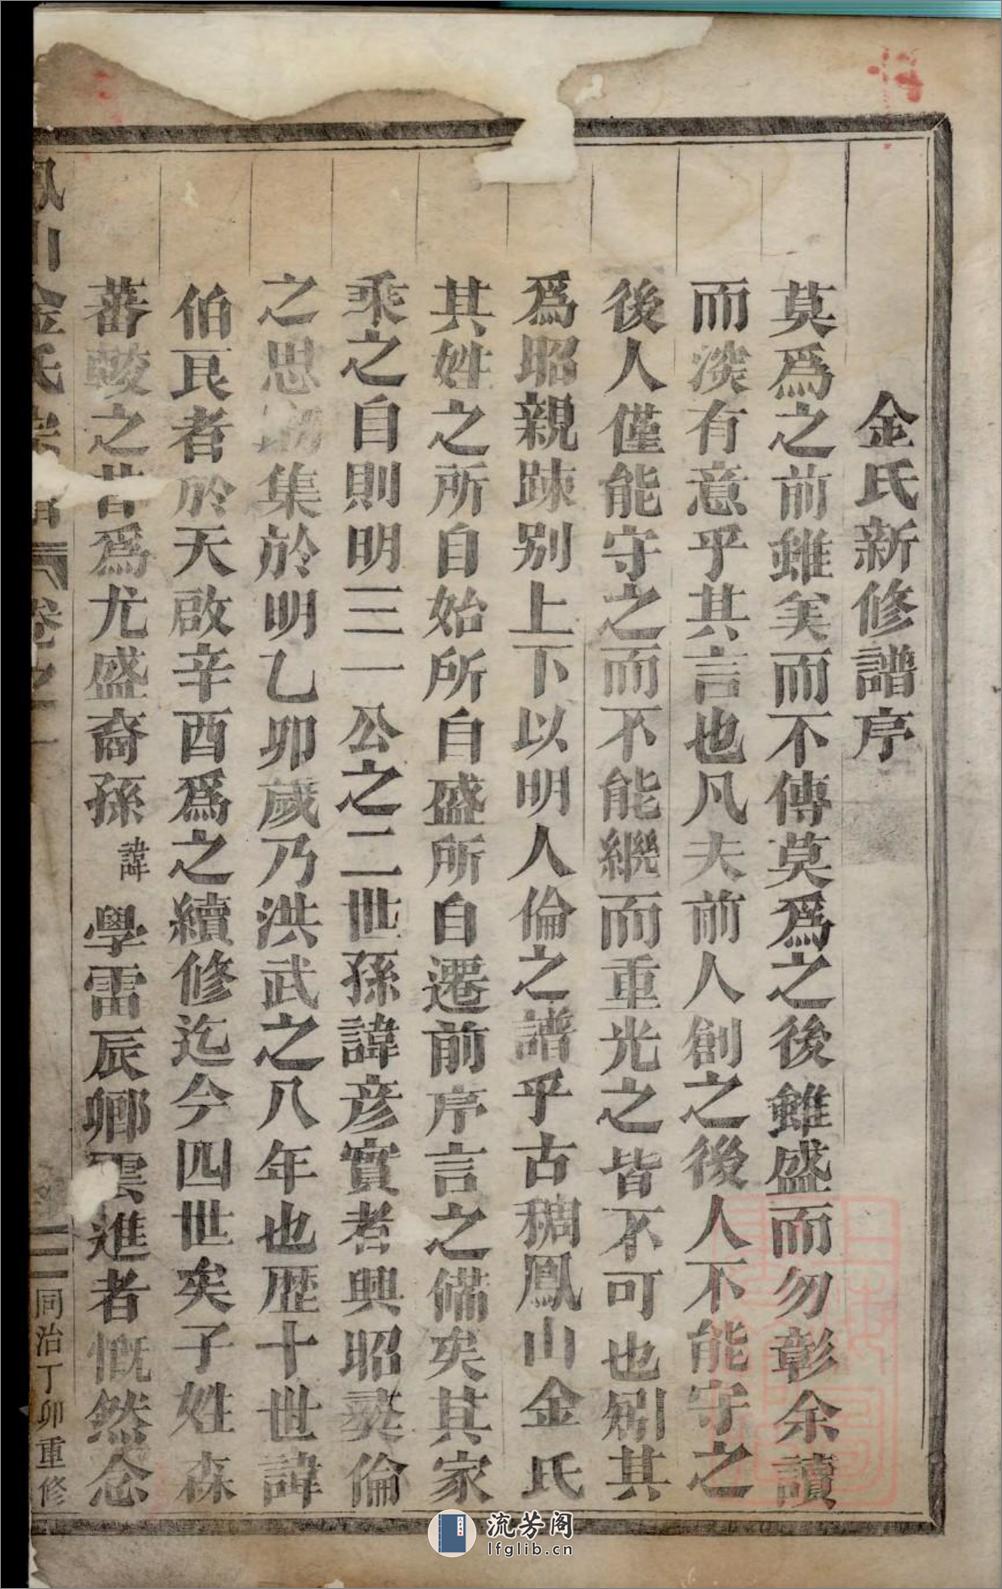 金氏新修譜序
莫爲之前雖美而不傳莫爲之後雖盛而勿彰余讀
而淡有意乎其言也凡夫前人創之後人不能守之
後人僅能守之而不能繼而重光之皆不可也矧其
爲昭親踈别上下以明人倫之譜乎古稠鳳山金氏
其姓之所自始所自盛所自遷前序言之備矣其家
乘之自則明三一公之二世孫諱彦實者興昭彛倫
之思 集於明乙卯歲乃洪武之八年也歴十世諱
伯艮者於天啟辛酉爲之續修迄今四世矣子姓森
蕃較之昔爲尤盛裔孫諱學雷辰卿雲進者慨然念
鳳山金氏宗譜 卷之一 一 同治丁卯重修
流芳阁
lfglib.cn